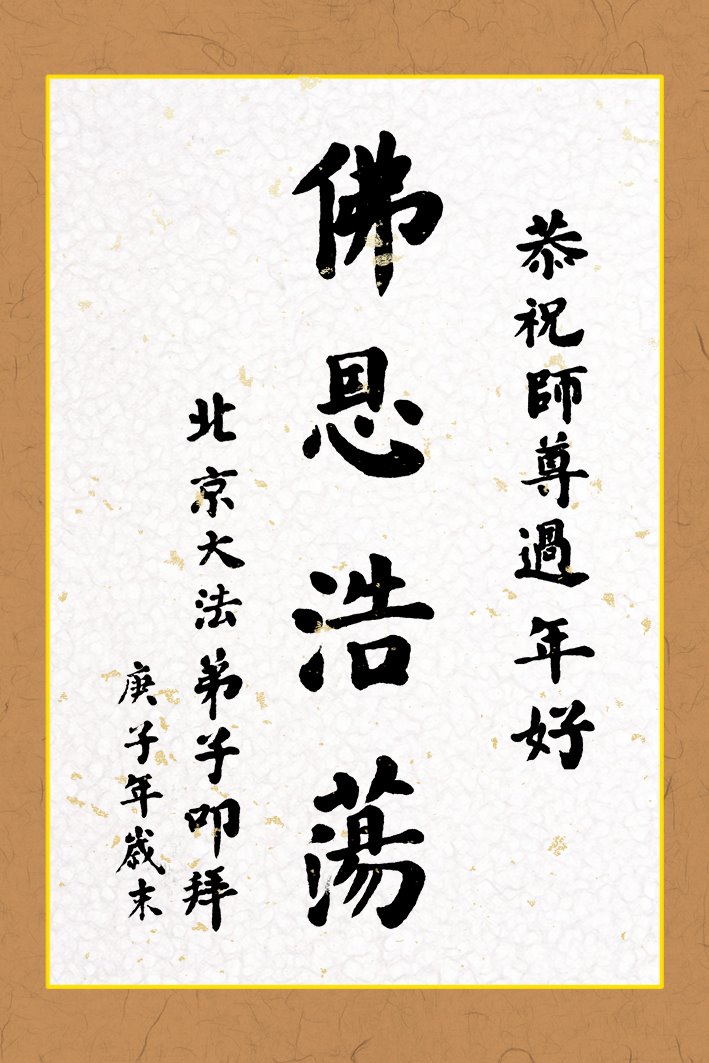 恭祝師尊過年好
佛恩浩蕩
北京大法弟子叩拜
庚子年歲末